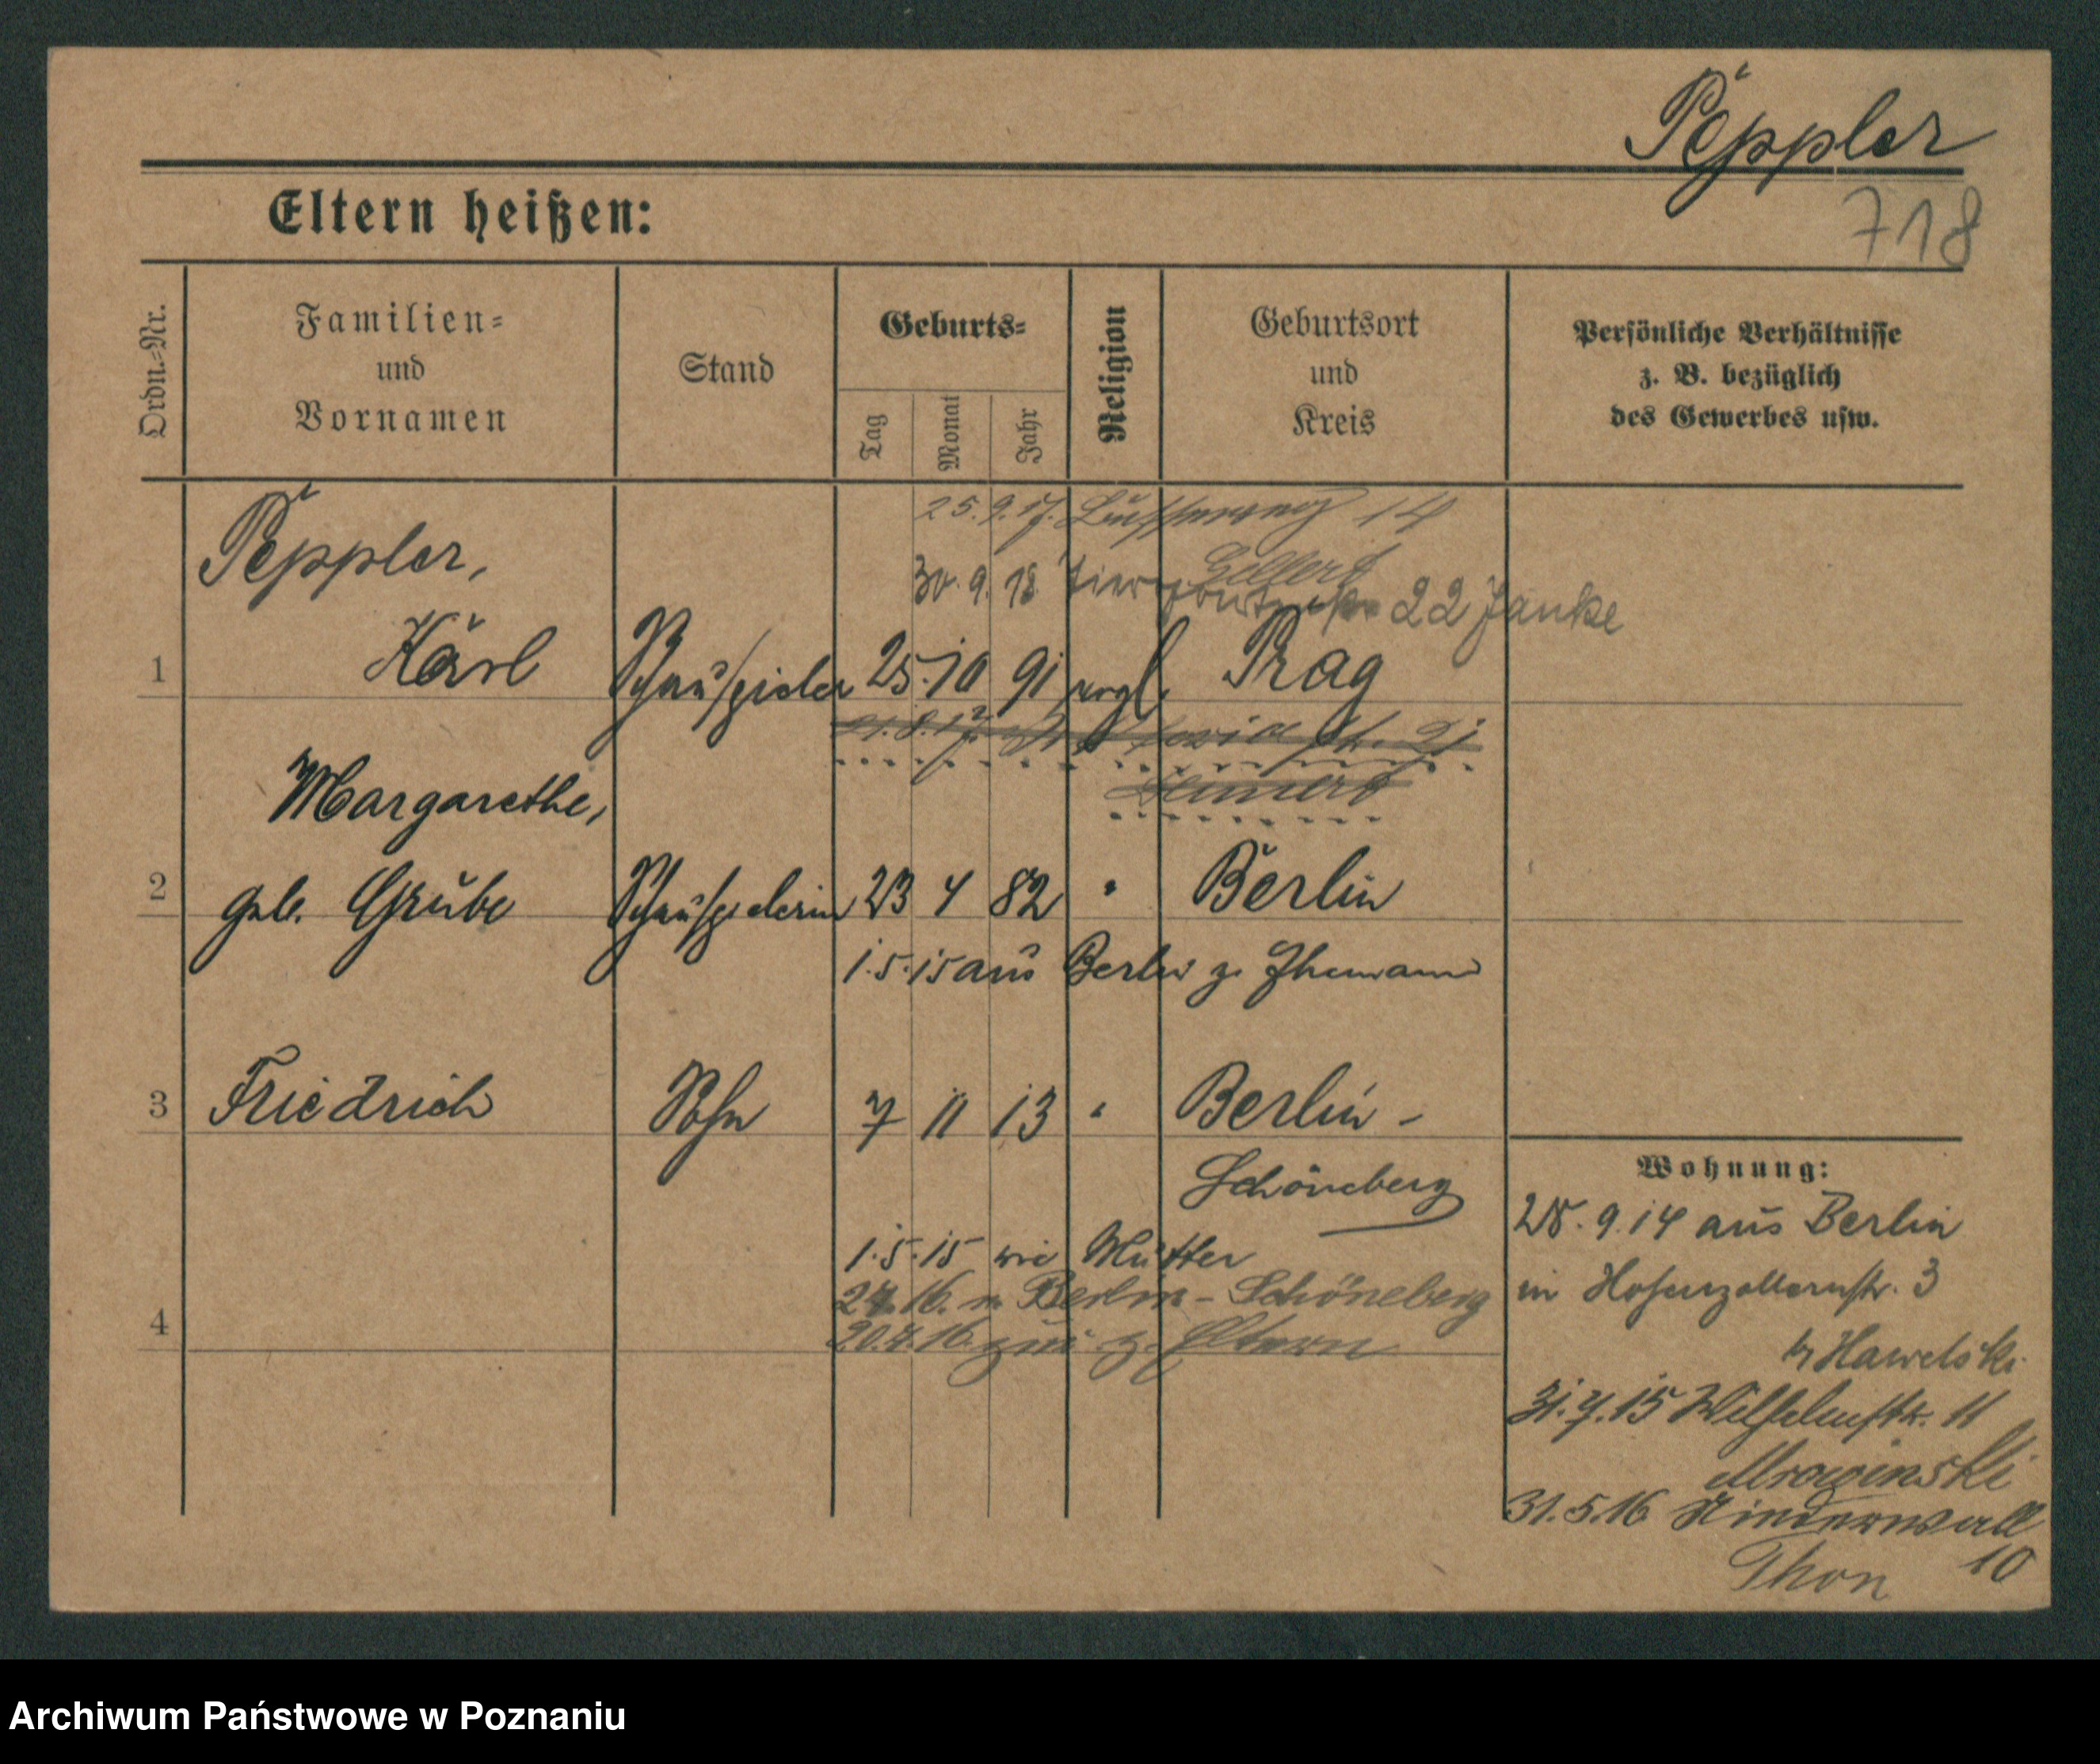 Peppler
718
Eltern heißen:
Ordn.=Nr.
Familien=
und
Vornamen
Stand
Geburts=
Tag
Monat
Jahr
Religion
Geburtsort
und
Kreis
Persönliche Verhältnisse
z. B. bezüglich
des Gewerbes usw.
25.9.17. 14
Gellert
30.9.18 22 Janke
Peppler,
1 Karl Schauspieler 25. 10 91 evgl. Prag
Margarethe,
2 geb. Grube Schauspielerin 23 4 82 " Berlin
1.5.15 aus Berlin z. Ehemann
3 Friedrich Sohn 7 11 13 " Berlin -
Schöneberg
Wohnung:
28.9.14 aus Berlin
in Hohenzollernstr. 3
b/ Hawelski
31.7.15 Wilhelmstr. 11
Mrowinski
31.5.16 Niederwall
10
Thon
1.5.15 wie Mutter
16. n. Berlin - Schöneberg
4 20.4.16. zur. z. Eltern
Archiwum Państwowe w Poznaniu